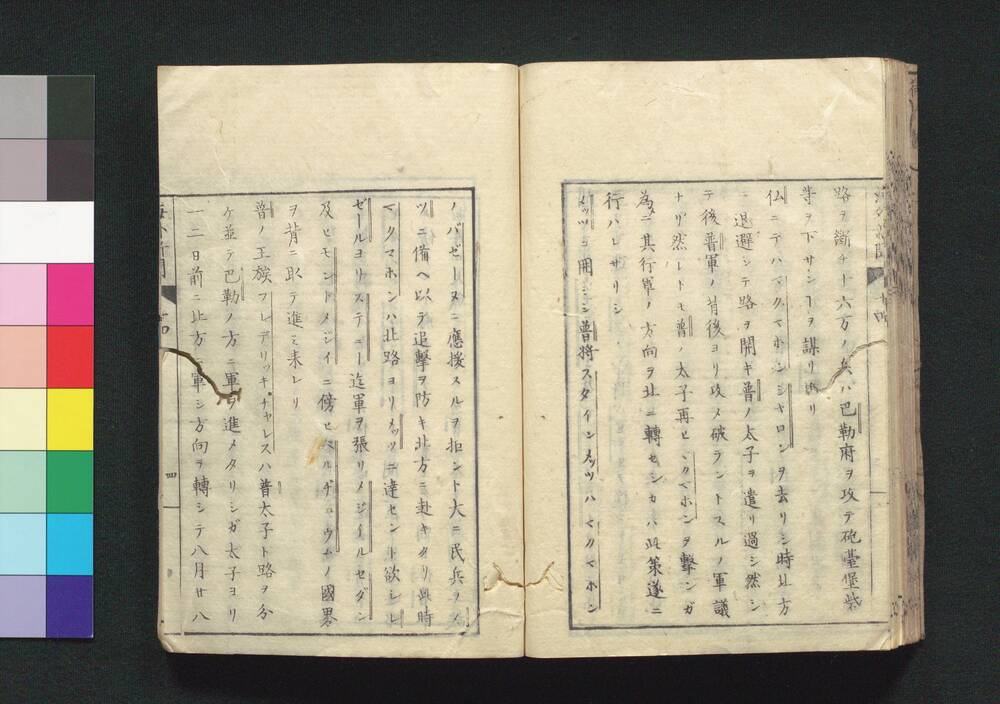 路ヲ斷チ十六万ノ兵ハ巴勒府ヲ攻テ砲臺堡柴
等ヲ下サンヿヲ謀リ居リ
仏ニテハマクマホンシヤロンヲ去リシ時北方
ニ退避シテ路ヲ開キ普ノ太子ヲ遣リ過シ然シ
テ後普軍ノ背後ヨリ攻メ破ラントスルノ軍議
ナリ然レトモ普ノ太子再ヒマクマホンヲ撃ンガ
為ニ其行軍ノ方向ヲ北ニ轉セシカハ此策遂ニ
行ハレサリシ
メッツヲ開シシ普将スタインメッツハマクマホン
ノバゼーヌニ應援スルヲ拒ント大ニ民兵ヲメ
ツニ備ヘ以テ追撃ヲ防キ北方ニ赴キタリ此時
マクマホンハ北路ヨリメッツニ達セント欲シレ
ゼールヨリステニー迄軍ヲ張リメジイルセダン
及ヒモントメジイニ傍ヒベルヂュウムノ國界
ヲ背ニ取テ進ミ来レリ
普ノ王族フレデリッキチャレスハ普太子ト路ヲ分
ケ並テ巴勒ノ方ニ軍ヲ進メタリシガ太子ヨリ
一二日前ニ北方ニ軍シ方向ヲ轉シテ八月廿八
四